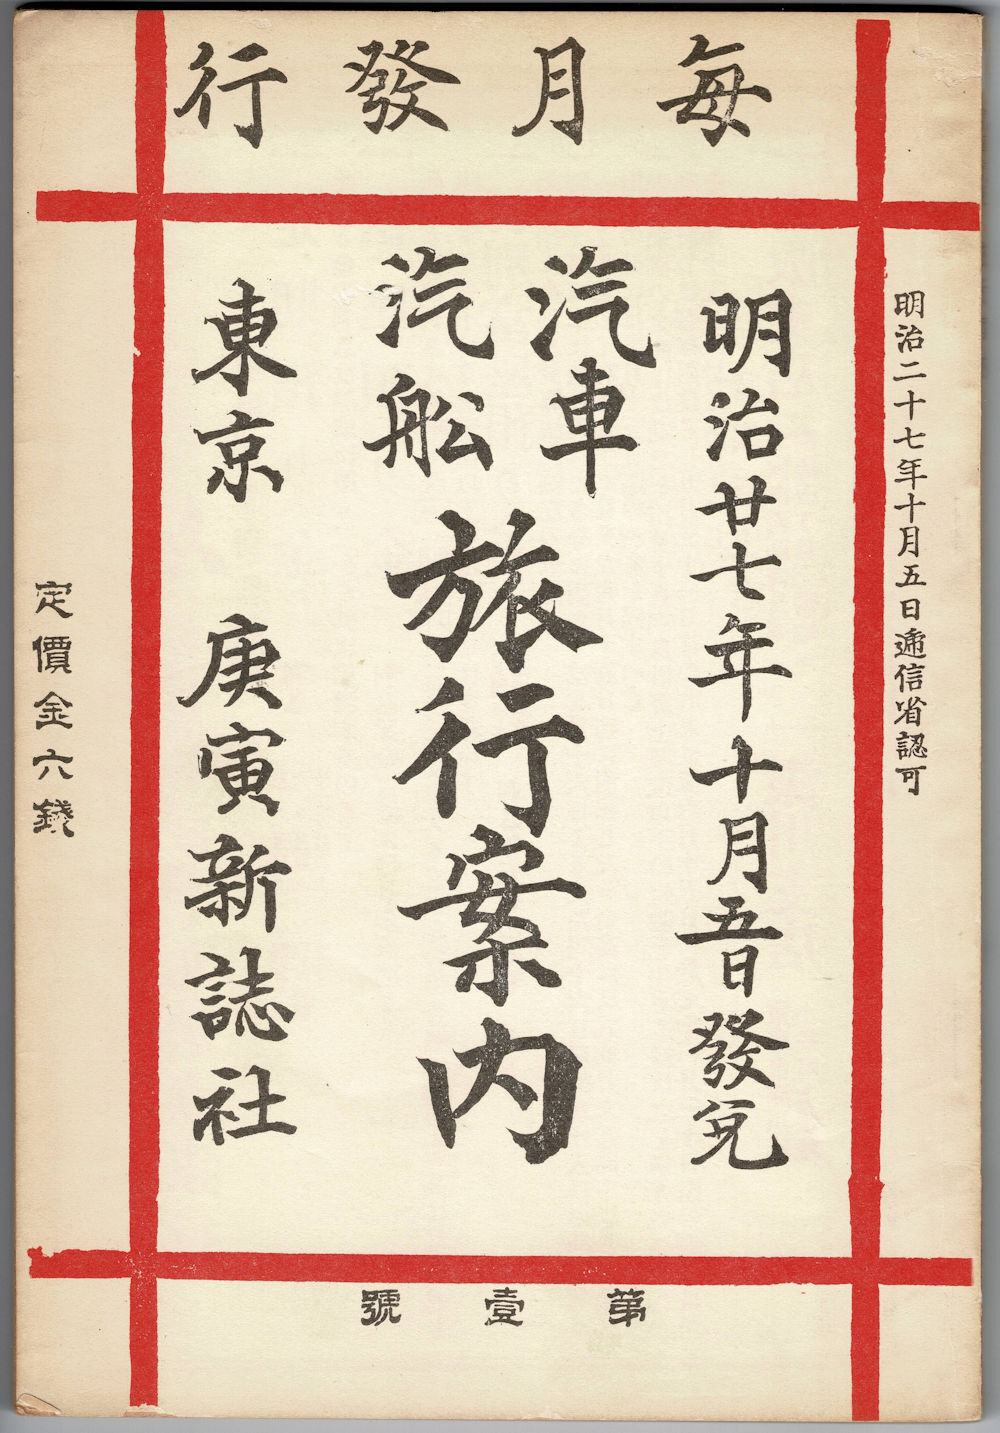 毎月發行
明治二十七年十月五日遞信省認可
明治廿七年十月五日發兌
汽車
汽舩
旅行案内
東京 庚寅新誌社
定價金六錢
第壹號